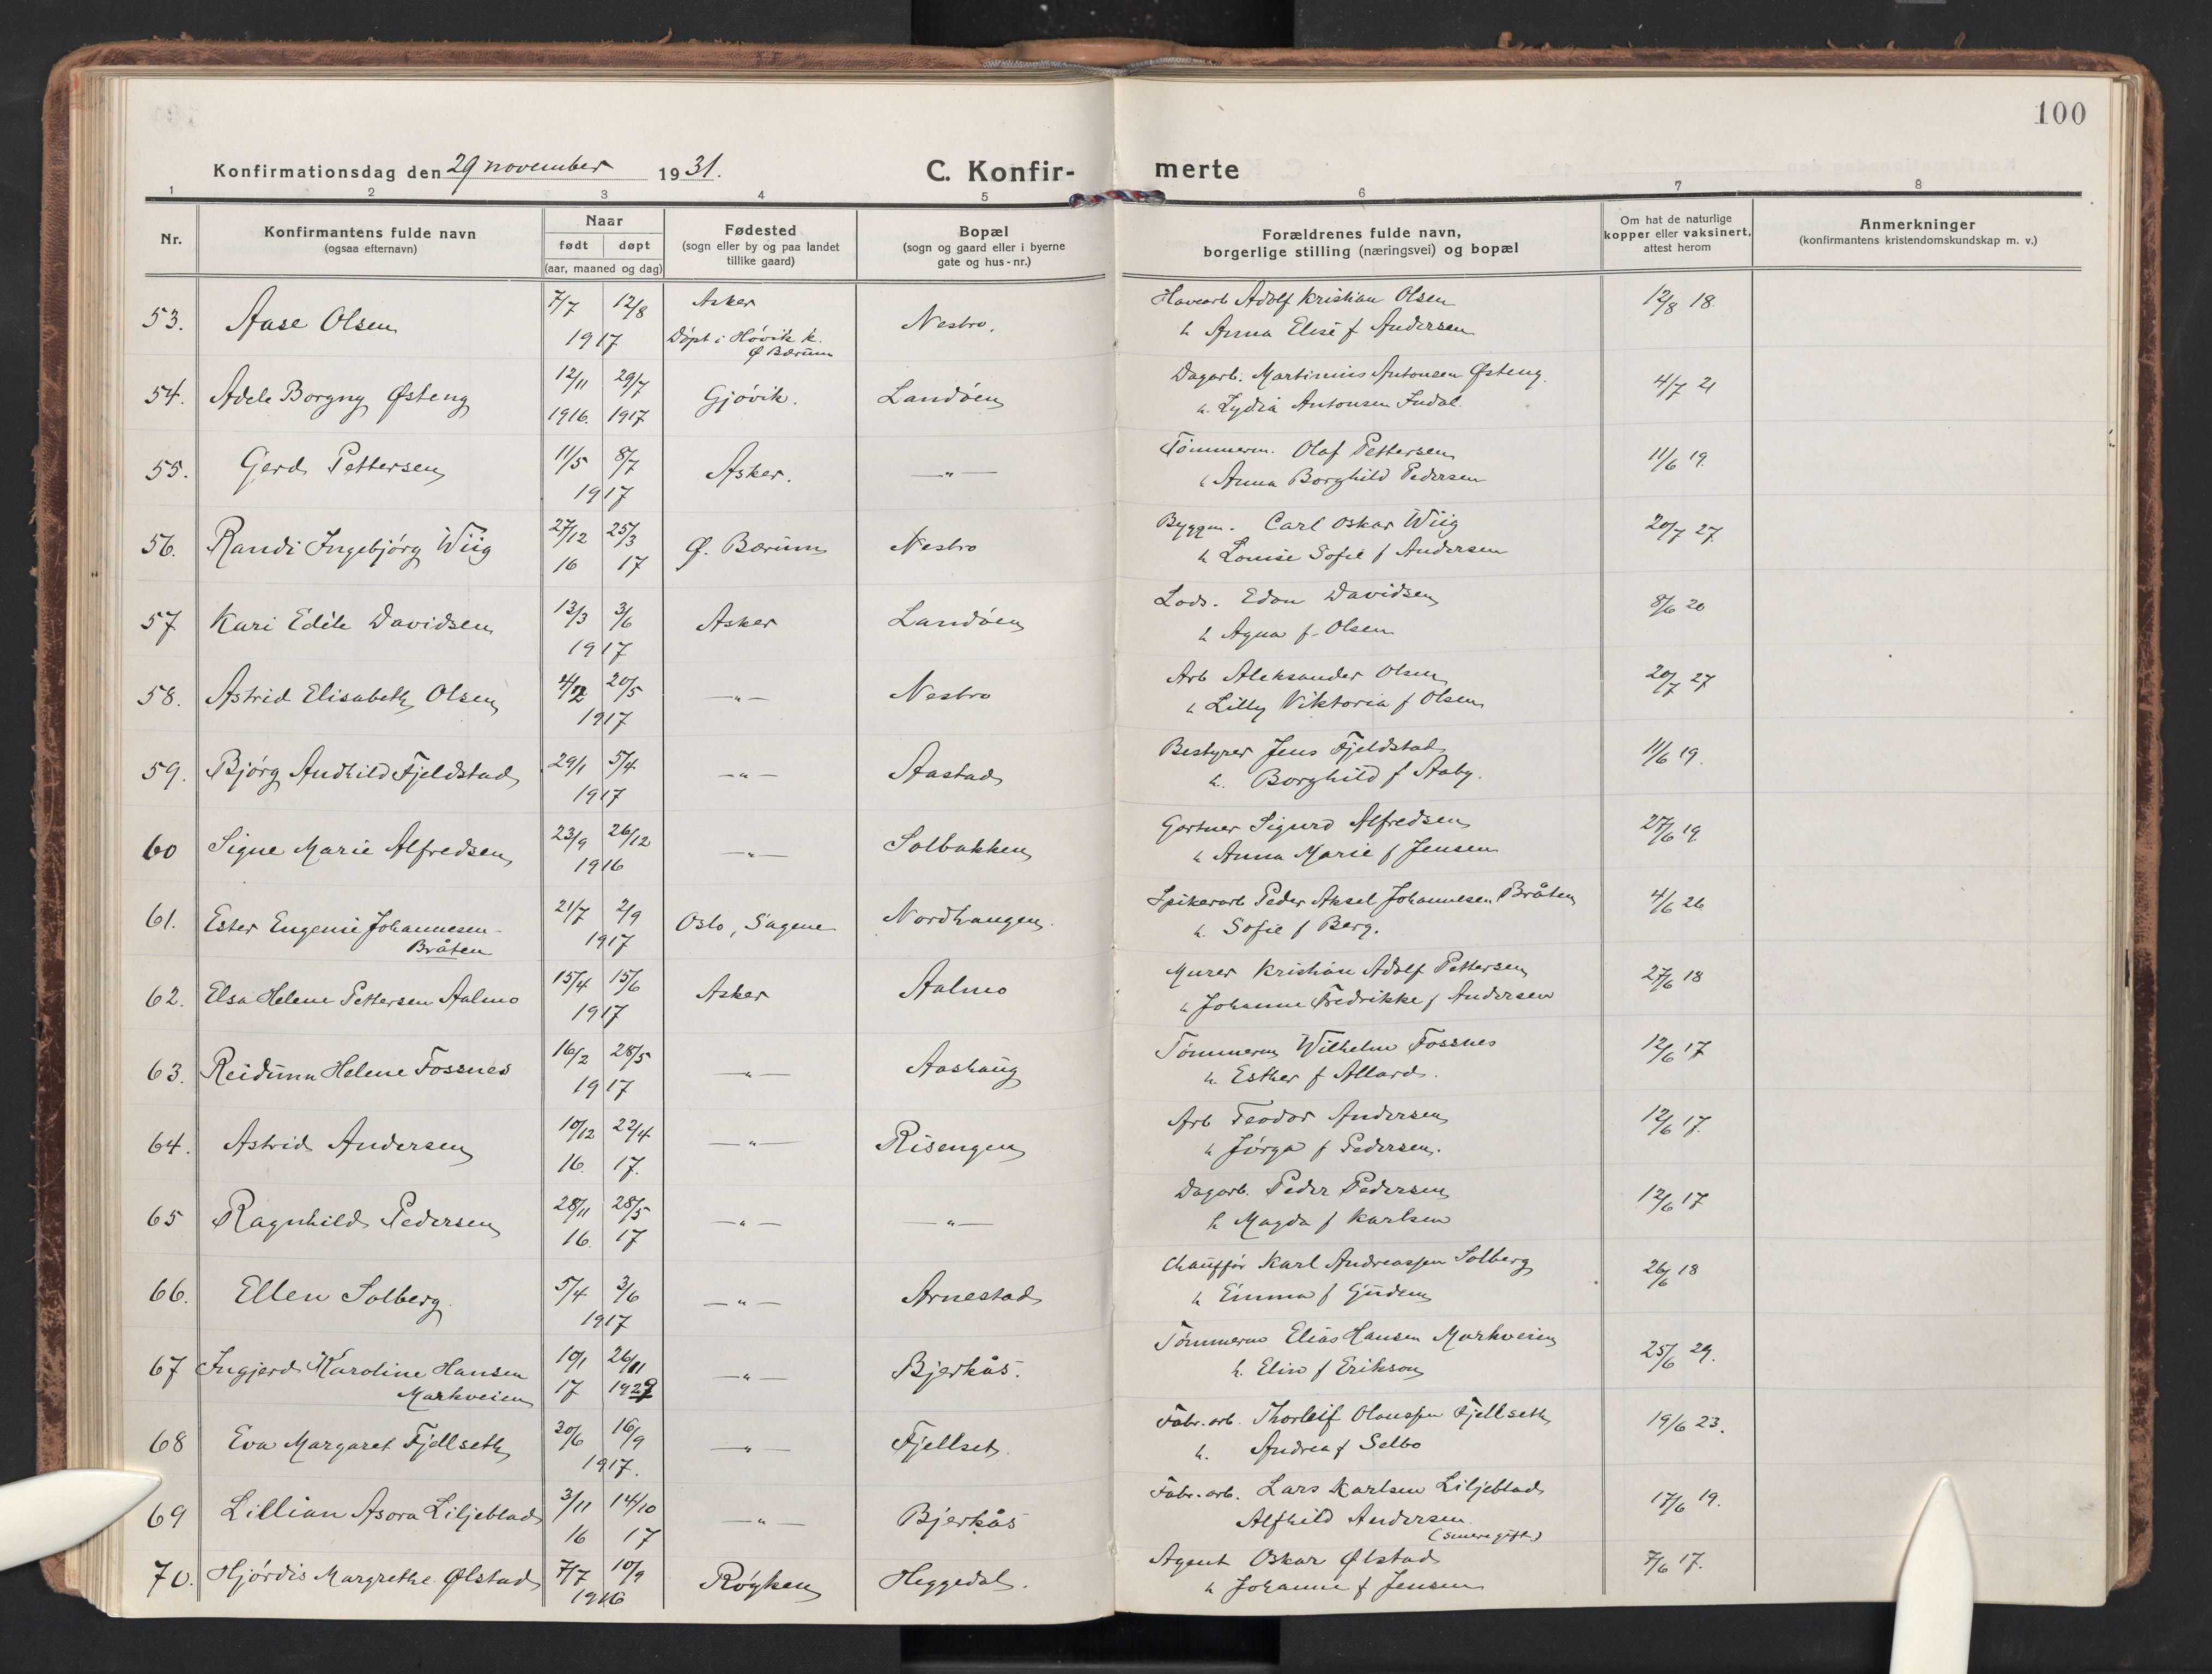 100
Konfirmationsdag den 29 november 1931.
C. Konfir-merte
1 2 3 4 5 6 7 8
Nr.
Konfirmantens fulde navn
(ogsaa efternavn)
Naar
født døpt
(aar, maaned og dag)
Fødested
(sogn eller by og paa landet
tillike gaard)
Bopæl
(sogn og gaard eller i byerne
gate og hus-nr.)
Forældrenes fulde navn,
borgerlige stilling (næringsvei) og bopæl
Om hat de naturlige
kopper eller vaksinert,
attest herom
Anmerkninger
(konfirmantens kristendomskundskap m. v.)
53. Aase Olsen 7/7 12/8 1917 Asker Nesbro. Havearb Adolf Kristian Olsen 12/8 18.
Døpt i Høvik k. Ø Bærum h Anna Elise f Andersen
54. Adele Borgny Østeng 12/11 1916. 29/7 1917 Gjøvik. Landøen Dagarb. Martinius Antonsen Østeng. 4/7 21
h. Lydia Antonsen Indal.
55. Gerd Pettersen 11/5 8/7 1917 Asker. —"— Tømmerm. Olaf Pettersen 11/6 19.
h Anna Borghild Pedersen
56. Randi Ingebjørg Wiig 27/12 16 25/3 17 Ø. Bærum Nesbro Byggm. Carl Oskar Wiig 20/7 27
h Louise Sofie f Andersen
57 Kari Edile Davidsen 13/3 3/6 1917 Asker Landøen Lods. Edon Davidsen 8/6 20
h Agna f. Olsen
58. Astrid Elisabeth Olsen 4/2 20/5 1917 —"— Nesbro Arb Aleksander Olsen 20/7 27
h Lilly Viktoria f Olsen
59. Bjørg Andhild Fjeldstad 29/1 5/4 1917 —"— Aastad Bestyrer Jens Fjeldstad 11/6 19.
h. Borghild f Aaby.
60 Signe Marie Alfredsen 23/9 26/12 1916 —"— Solbakken Gartner Sigurd Alfredsen 27/6 19.
h Anna Marie f Jensen
61. Ester Eugenie Johannesen Bråten 21/7 2/9 1917 Oslo, Sagene Nordhaugen. Spikerarb Peder Aksel Johannesen Bråten 4/6 26
h. Sofie f Berg.
62. Elsa Helene Pettersen Aalmo 15/4 15/6 1917 Asker Aalmo Murer Kristian Adolf Pettersen 27/6 18
h Johanne Fredrikke f Andersen
63. Reidunn Helene Fossnes 16/2 28/5 1917 —"— Aashaug Tømmerm Wilhelm Fossnes 12/6 17
h. Esther f Allard.
64. Astrid Andersen 10/12 16. 22/4 17. —"— Risengen Arb Teodor Andersen 12/6 17.
h Jørga f Pedersen.
65 Ragnhild Pedersen 28/11 16. 28/5 17 —"— —"— Dagarb. Peder Pedersen 12/6 17
h Magda f Karlsen
66. Ellen Solberg. 5/4 3/6 1917 —"— Arnestad Chauffør Karl Andreassen Solberg 26/6 18
h Emma f Gjüdem
67 Ingjerd Karoline Hansen Markveien 10/1 17 26/11 1927 —"— Bjerkås. Tømmerm Elias Hansen Markveien 25/6 29.
h. Elin f Erikson
68 Eva Margaret Fjellseth 30/6 16/9 1917. —"— Fjellset. Fabr. arb. Thorleif Olaussen Fjellseth 19/6 23.
h. Andrea f Selbo
69 Lillian Asora Liljeblad 3/11 16 14/10 17 —"— Bjerkås Fabr. arb. Lars Karlsen Liljeblad 17/6 19.
Alfhild Andersen (senere gift)
70. Hjørdis Margrethe Ølstad 7/7 10/9 1916 Røyken Heggedal. Agent Oskar Ølstad 7/6 17.
h Johanne f Jensen